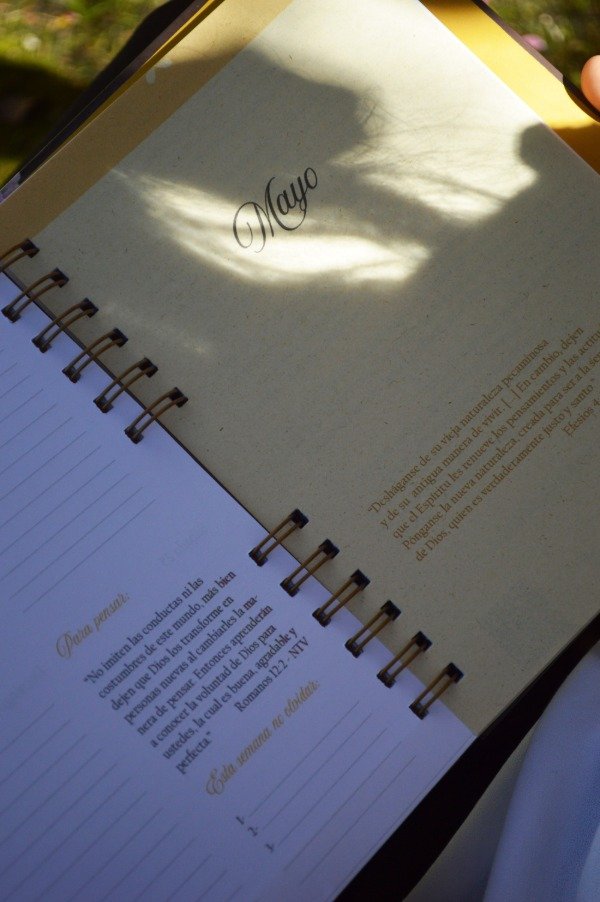 Para pensar:
"No imiten las conductas ni las
costumbres de este mundo, más bien
dejen que Dios los transforme en
personas nuevas al cambiarles la ma-
nera de pensar. Entonces aprenderán
a conocer la voluntad de Dios para
ustedes, la cual es buena, agradable y
perfecta." Romanos 12.2 - NTV
Esta semana no olvidar:
1-
2-
Mayo
"Desháganse de su vieja naturaleza pecaminosa
y de su antigua manera de vivir [...] En cambio, dejen
que el Espíritu les renueve los pensamientos y las
Pónganse la nueva naturaleza, creada para ser a la
de Dios, quien es verdaderamente justo y santo."
Efesios 4